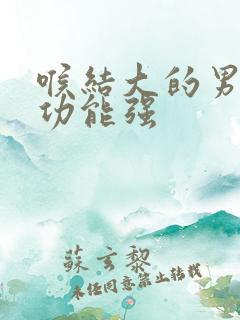 喉結大的男
功能强
蘇玄黎
未经同意禁止转载